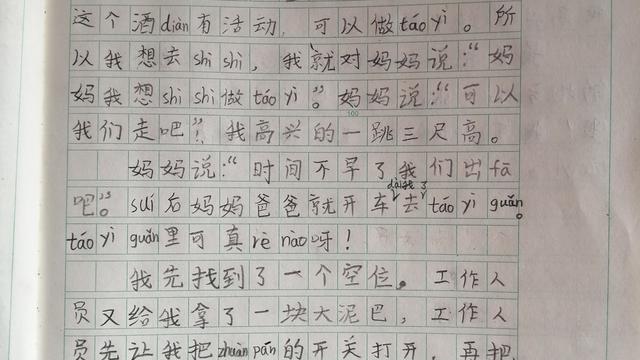 这个酒diàn有活动，可以做táo yì。所
以我想去shì shì，我就对妈妈说：“妈
妈我想shì shì做táo yì”。妈妈说：“可以
100
我们走吧”！我高兴的一跳三尺高。
妈妈说：“时间不早了我们出fā
吧”。suí后妈妈爸爸就开车带我去了táo yì guǎn。
táo yì guǎn里可真rè nào呀！
我先找到了一个空位。工作人
员又给我拿了一块大泥巴，工作人
员先让我把zhuàn pán的开关打开，再把